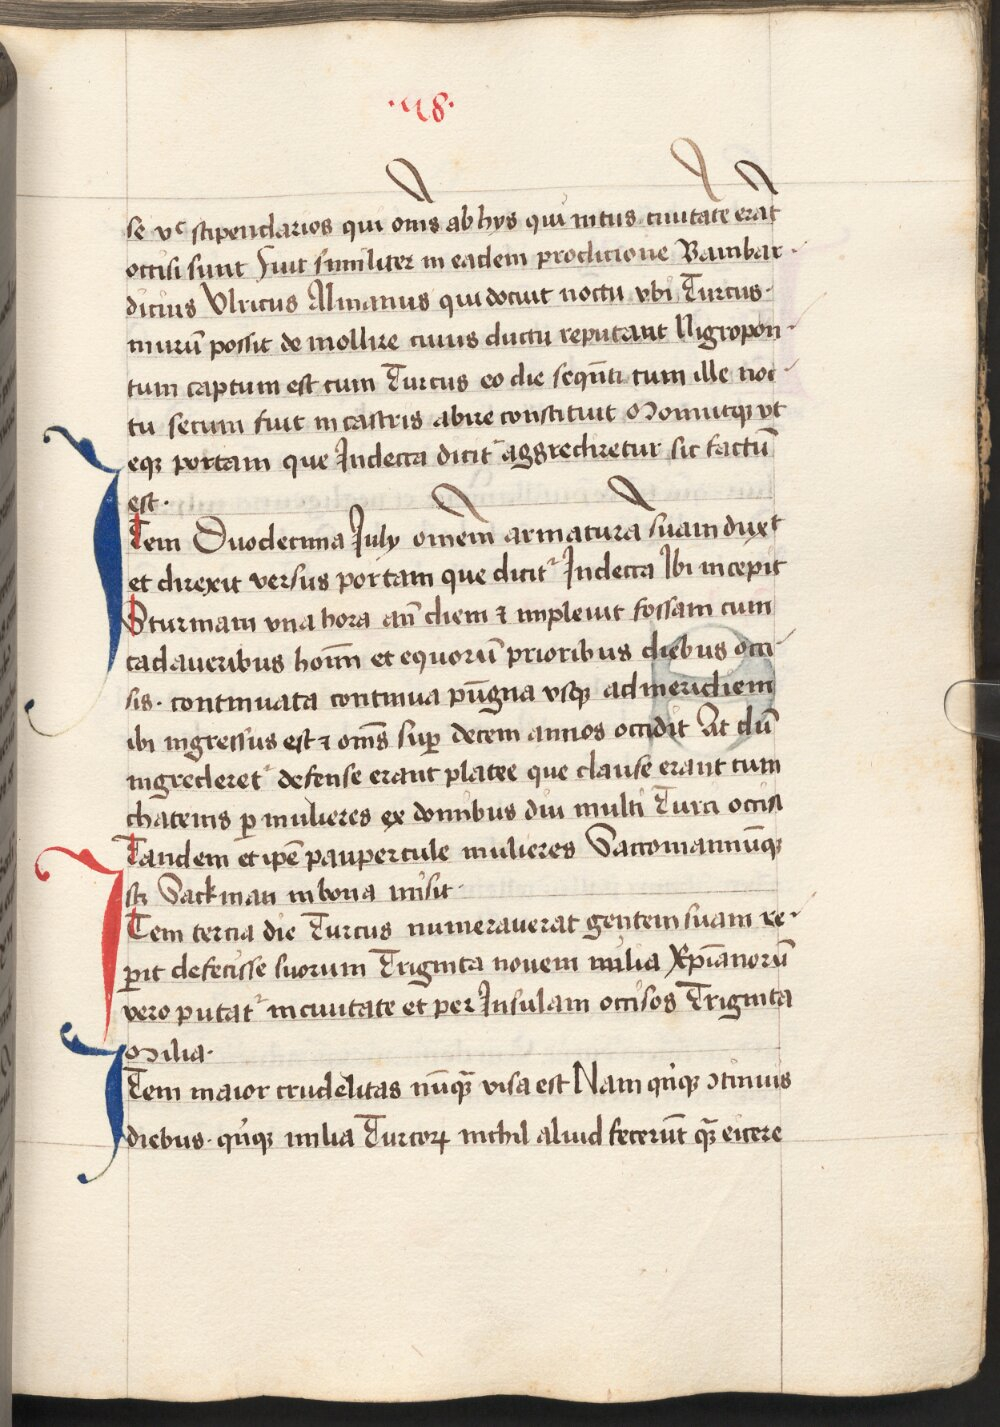 ·98·
se vᶜ stipendarios qui om̄s ab hys qui intus ciuitate erāt
occisi sunt Fuit similiter in eadem prodicione Bambar
dicius Vlricus Almanus qui docuit noctu vbi Turcus·
murū possit de mollire cuius ductu reputant Nigropon
tum captum est cum Turcus eo die seqn̄ti cum ille noc
tu secum fuit in castris abire constituit Monuitqꝫ vt
eqꝫ portam que Judecca dicit᷑ aggrediretur sic factū
est·
Item Duodecima July omēm armaturā suam duxᵗ
et direxit versus portam que dicit᷑ Judecca Ibi incepit
Sturmam vna hora an̄ diem ⁊ impleuit fossam cum
cadaueribus hoīm et equorū prioribus diebus occi
sis· continuata continua pūgna vsqꝫ ad meridiem
ibi ingressus est ⁊ om̄s sup̱ decem annos occidit At dū
ingrederet᷑ defense erant platee que clause erant cum
chatenis ꝑ mulieres ex domibus diu multi Turci occisi
Tandem et ip̄e paupercule mulieres Saccomannūqꝫ
sꝫ Sackman in bona misit·
Item tercia die Turcus numerauerat gentem suam re
perit defecisse suorum Triginta nouem milia Xp̄ianorū
vero putat᷑ in ciuitate et per Insulam occisos Triginta
Milia·
Item maior crudelitas nūqꝫ̄ visa est Nam qn̄qꝫ ↄtinuis
diebus· qn̄qꝫ milia Turcoꝝ nichil aliud fecerūt qꝫ̄ eicere